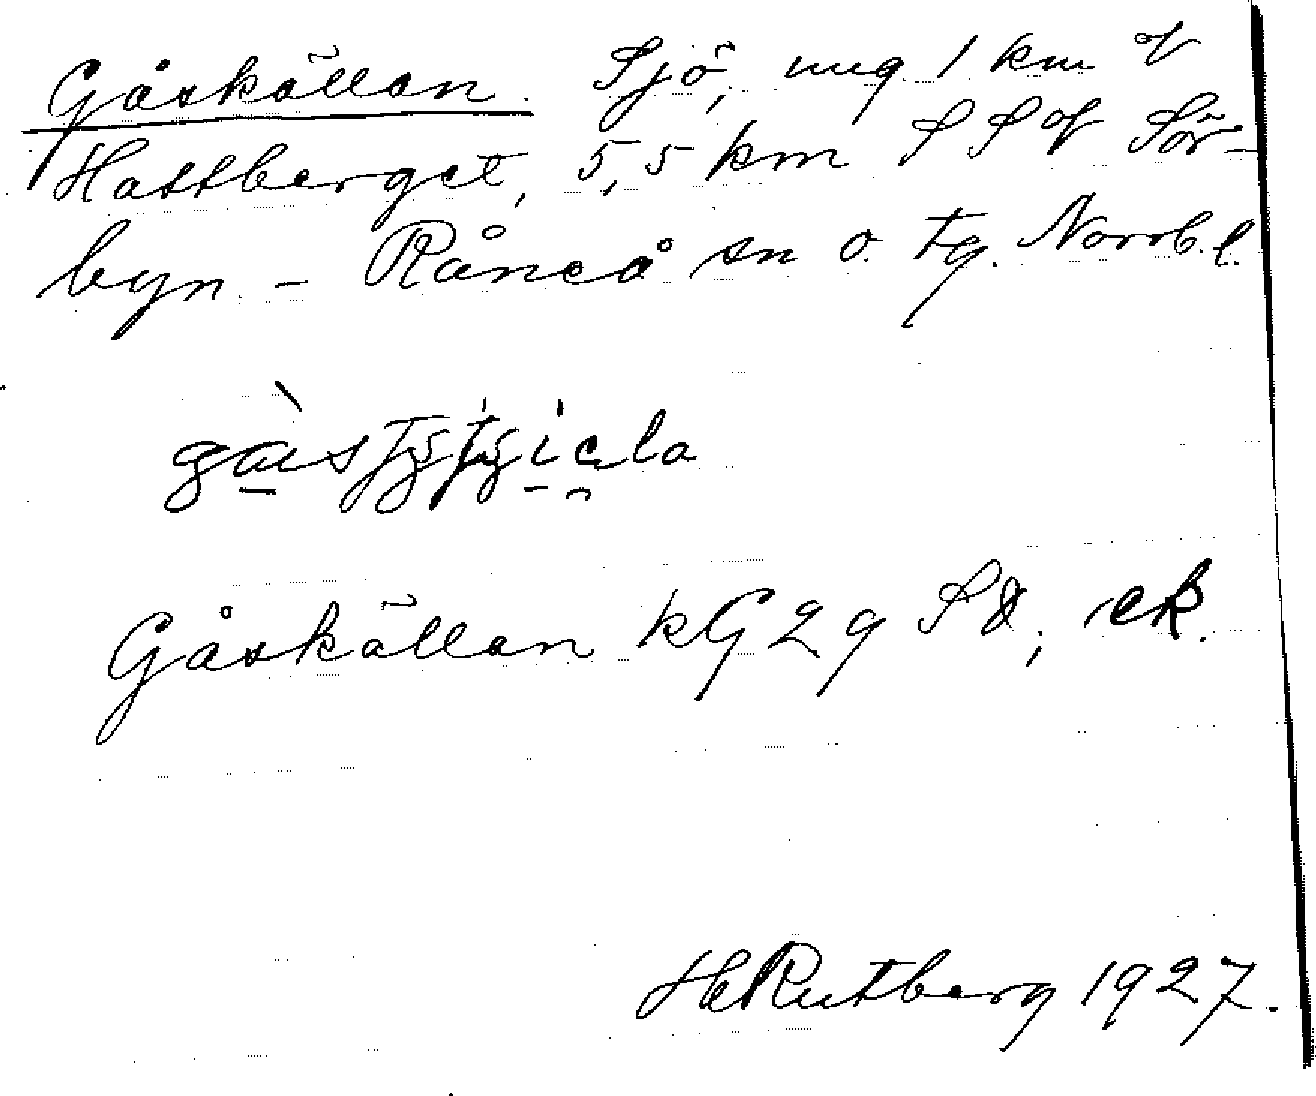 Gåskällan. Sjö, ung. 1 km V
Hattberget, 5,5 km SSV Sör-
byn. – Råneå sn o. tg. Norrb. l.
Gåskällan kG2g SO, ek.
HRutberg 1927.